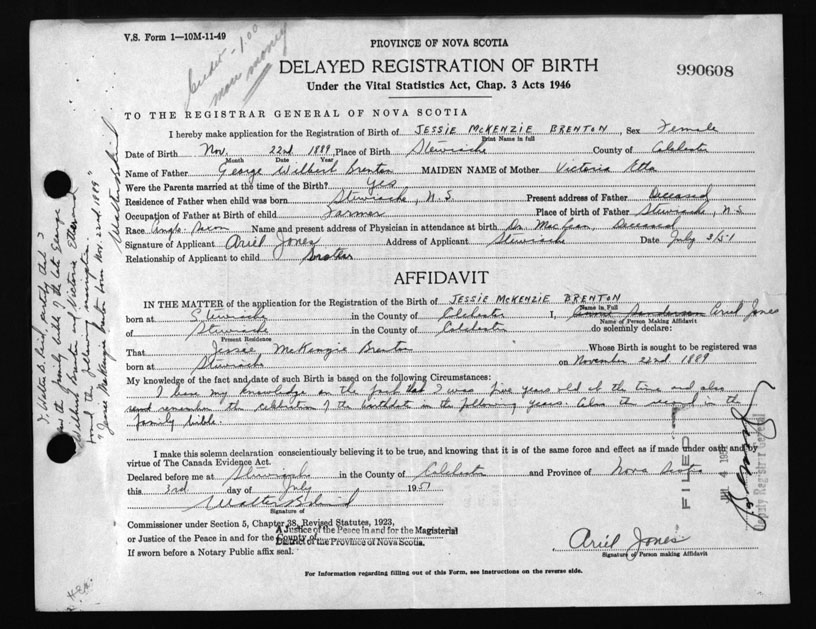 V.S. Form 1—10M-11-49
PROVINCE OF NOVA SCOTIA
DELAYED REGISTRATION OF BIRTH
990608
Under the Vital Statistics Act, Chap. 3 Acts 1946
more money
TO THE REGISTRAR GENERAL OF NOVA SCOTIA
I hereby make application for the Registration of Birth of JESSIE McKENZIE BRENTON, Sex Female
Print Name in full
Date of Birth Nov. 22nd 1889, Place of Birth Stewiacke County of Colchester
Month Date Year
Name of Father George Wilbert Brenton MAIDEN NAME of Mother Victoria Etta
Were the Parents married at the time of the Birth? Yes
Residence of Father when child was born Stewiacke, N.S. Present address of Father Deceased
Occupation of Father at Birth of child Farmer Place of birth of Father Stewiacke, N.S.
Race Anglo-Saxon Name and present address of Physician in attendance at birth Dr. MacLean, Deceased
Signature of Applicant Ariel Jones Address of Applicant Stewiacke Date July 3/51
Relationship of Applicant to child brother
AFFIDAVIT
IN THE MATTER of the application for the Registration of the Birth of JESSIE McKENZIE BRENTON
Name in Full
born at Stewiacke in the County of Colchester I, Ariel Jones
Name of Person Making Affidavit
of Stewiacke in the County of Colchester do solemnly declare:
Present Residence
That Jessie McKenzie Brenton Whose Birth is sought to be registered was
born at Stewiacke on November 22nd 1889
My knowledge of the fact and date of such Birth is based on the following Circumstances:
I base my knowledge on the fact that I was five years old at the time and also
remember the celebration of the birthdate in the following years. Also the record in the
family bible.
I make this solemn declaration conscientiously believing it to be true, and knowing that it is of the same force and effect as if made under oath and by
virtue of The Canada Evidence Act.
Declared before me at Stewiacke in the County of Colchester and Province of Nova Scotia
this 3rd day of July 1951
Signature of
Commissioner under Section 5, Chapter 38, Revised Statutes, 1923,
A Justice of the Peace in and for the Magisterial
or Justice of the Peace in and for the County of
District of the Province of Nova Scotia.
If sworn before a Notary Public affix seal.
Ariel Jones
Signature of Person making Affidavit
For Information regarding filling out of this Form, see instructions on the reverse side.
FILED
Deputy Registrar General
certify that I
saw the family bible of the late George
Wilbert Brenton and Victoria Etta and
found the following inscription.
"Jessie McKenzie Brenton born Nov. 22nd 1889"